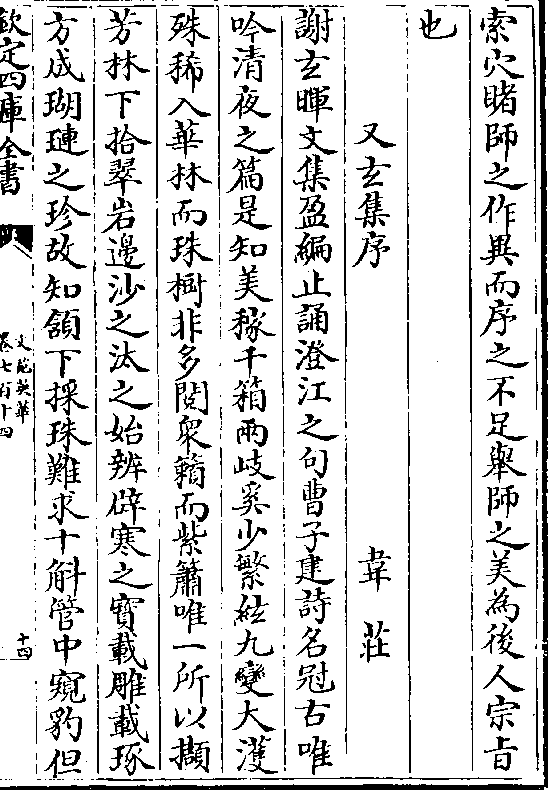 索穴睹師之作異而序之不足舉師之美為後人宗旨
也
又玄集序 韋莊
謝玄暉文集盈編止誦澄江之句曹子建詩名冠古唯
吟清夜之篇是知美稼千箱兩岐奚少繁絃九變大濩
殊稀入華林而珠樹非多閱衆籟而紫簫唯一所以擷
芳林下拾翠岩邊沙之汰之始辨辟寒之寶載雕載琢
方成瑚璉之珍故知頷下採珠難求十斛管中窺豹但
欽定四庫全書
文苑英華
卷七百十四
十四